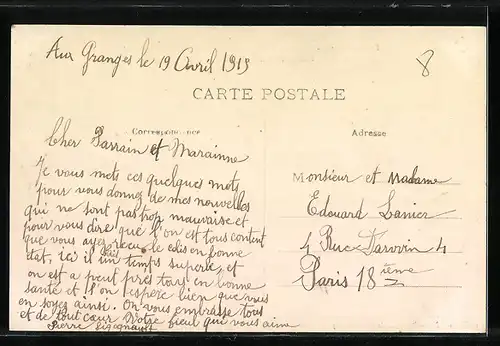 Aux Granges le 19 Avril 1919
8
CARTE POSTALE
Correspondance
Adresse
Cher Parrain et Marainne
Je vous mets ces quelques mots
pour vous donnez de mes nouvelles
qui ne sont pas trop mauvaise et
pour vous dire que l'on est tous content
que vous ayez recu le colis en bonne
état, ici il fait un temps superbe, et
on est a peut près tous en bonne
santé et l'on espere bien que vous
en soyez ainsi. On vous embrasse tous
et de tout cœur Votre fieul qui vous aime
Pierre
Monsieur et Madame
Edouard Lanier
4 Rue Darwin 4
Paris 18 ième